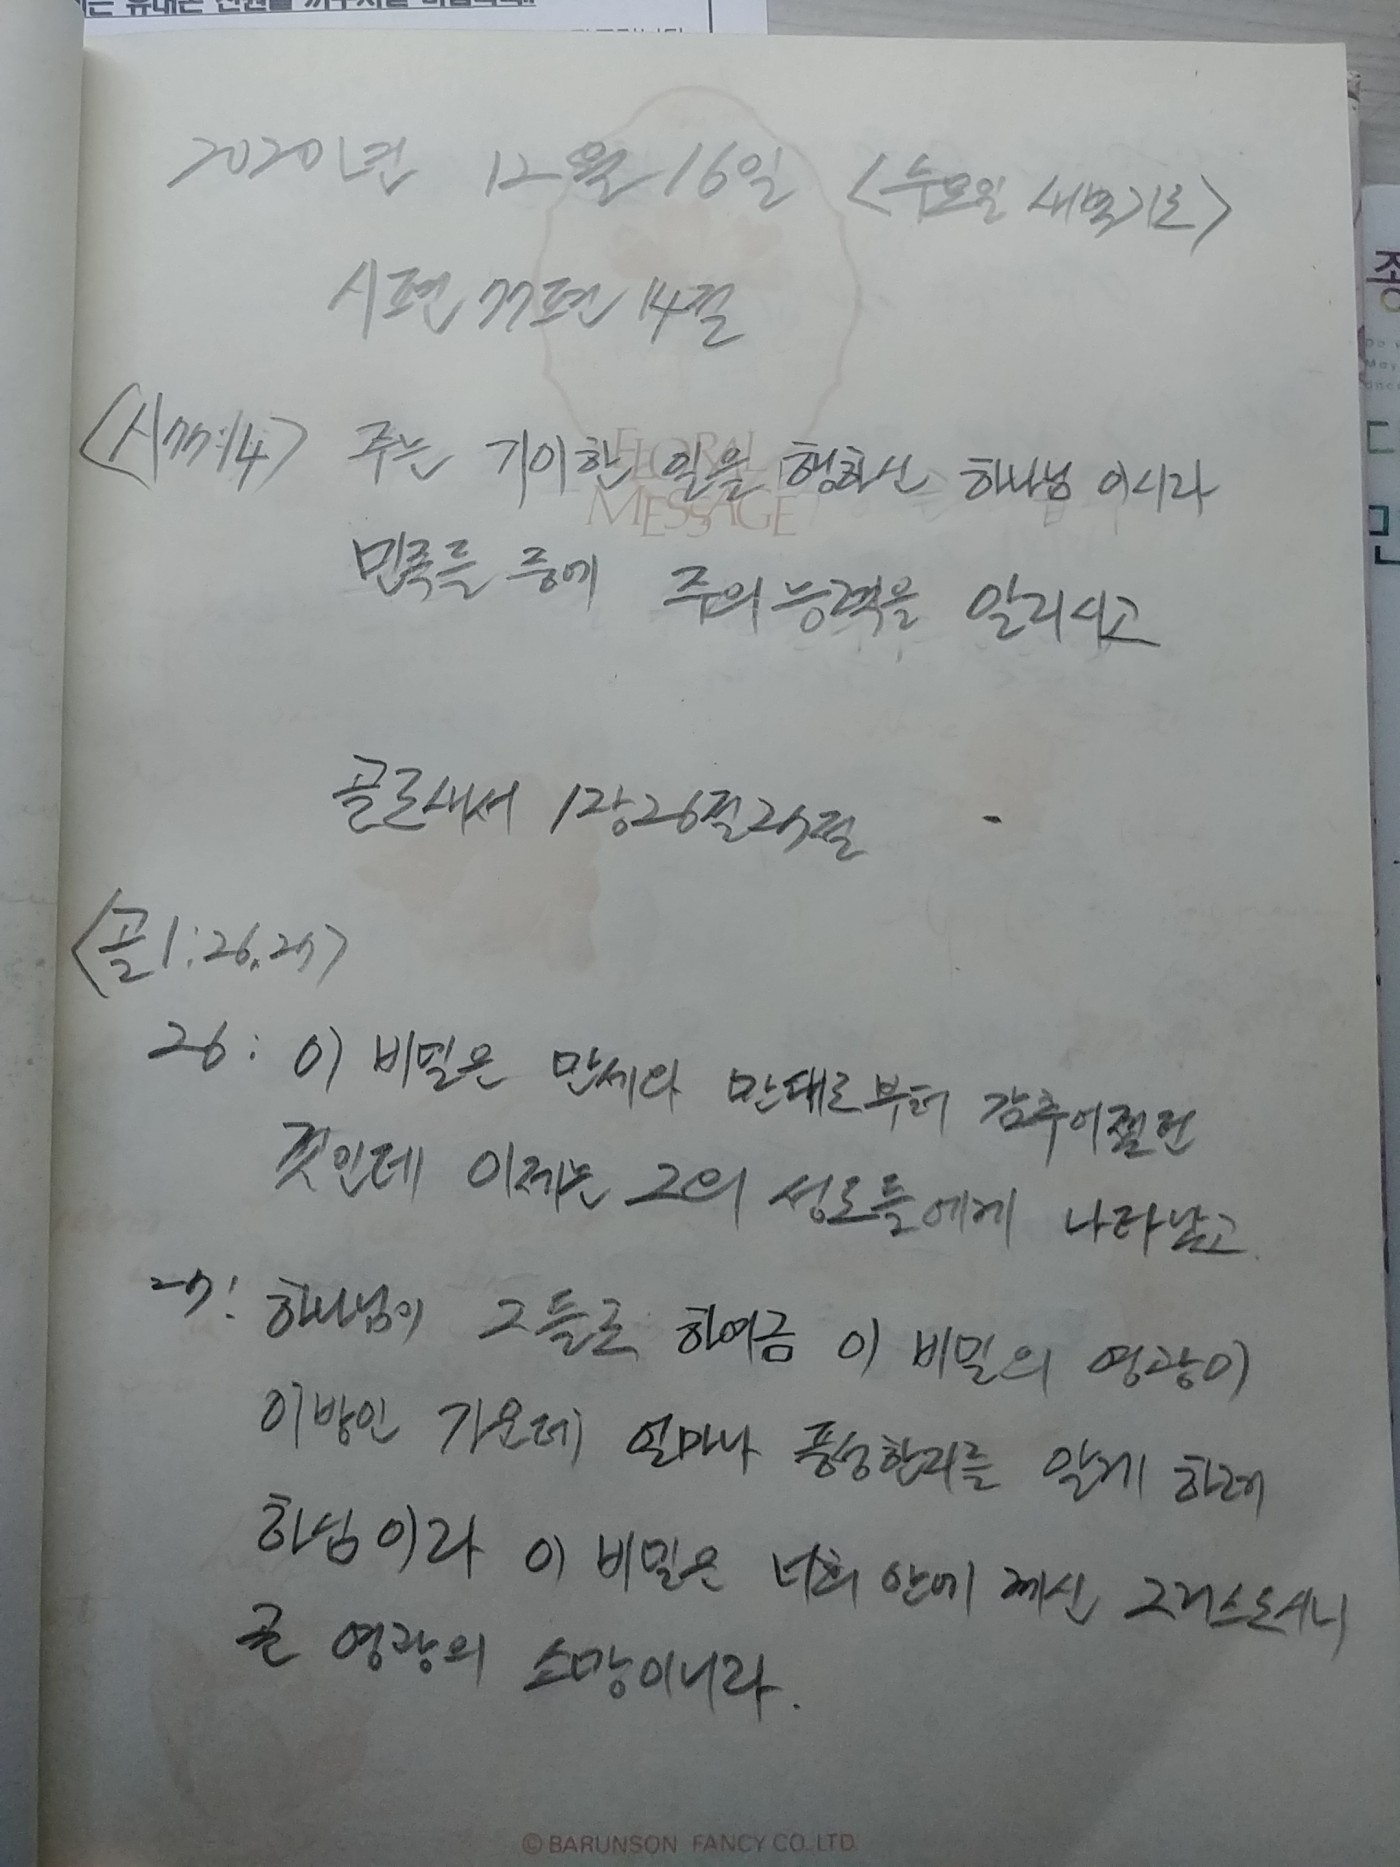 2020년 12월 16일 <수요일 새벽기도>
시편 77편 14절
FLORAL
MESSAGE
<시77:14> 주는 기이한 일을 행하신 하나님 이시라
민족들 중에 주의 능력을 알리시고
골로새서 1장26절27절
<골1:26,27>
26: 이 비밀은 만세와 만대로부터 감추어졌던
것인데 이제는 그의 성도들에게 나타났고
27: 하나님이 그들로 하여금 이 비밀의 영광이
이방인 가운데 얼마나 풍성한지를 알게 하려
하심이라 이 비밀은 너희 안에 계신 그리스도시니
곧 영광의 소망이니라.
© BARUNSON FANCY CO.,LTD.